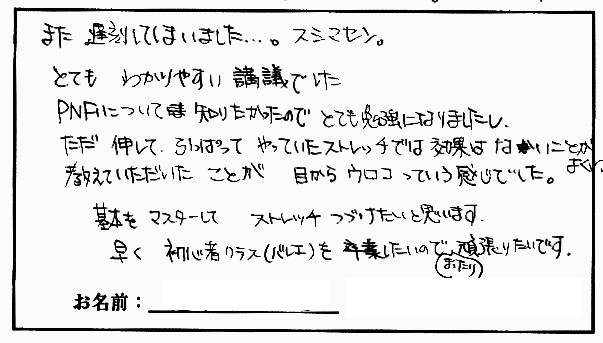 また 遅刻してしまいました…。スミマセン。
とても わかりやすい 講議でした
PNFについては 知りたかったので とても勉強になりましたし、
ただ 伸して、引っぱって やっていたストレッチでは 効果は ないことが
よくい
教えていただいた ことが 目からウロコっていう感じでした。
基本を マスターして ストレッチ つづけたいと思います。
早く 初心者クラス(バレエ)を 卒業したいので、頑張りたいです。
まったり
お名前：